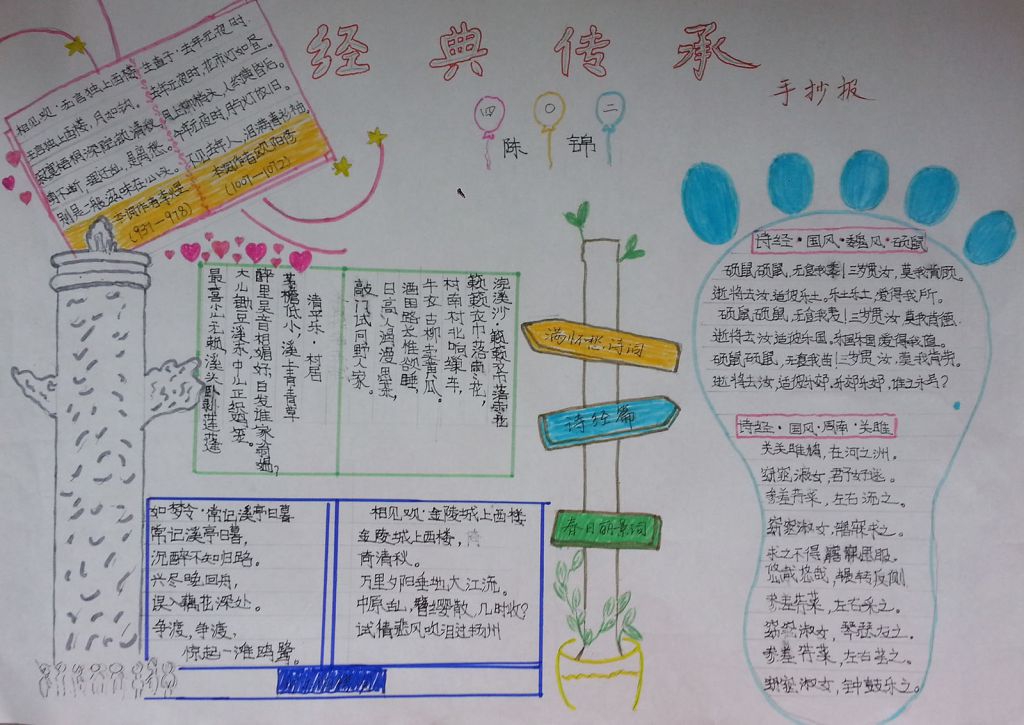 经典传承
手抄报
四〇二
陈锦
相见欢·无言独上西楼
无言独上西楼，月如钩。
寂寞梧桐深院锁清秋
剪不断，理还乱，是离愁。
别是一般滋味在心头。
本词作者李煜
(937—978)
生查子·去年元夜时
去年元夜时，花市灯如昼。
月上柳梢头，人约黄昏后。
今年元夜时，月与灯依旧。
不见去年人，泪满春衫袖
本词作者欧阳修
(1007—1072)
浣溪沙·簌簌衣巾落枣花
簌簌衣巾落枣花，
村南村北响缲车，
牛衣古柳卖黄瓜。
酒困路长惟欲睡，
日高人渴漫思茶，
敲门试问野人家。
清平乐·村居
茅檐低小，溪上青青草
醉里吴音相媚好，白发谁家翁媪，
大儿锄豆溪东，中儿正织鸡笼。
最喜小儿无赖，溪头卧剥莲蓬
满怀愁诗词
诗经篇
春日丽景词
如梦令·常记溪亭日暮
常记溪亭日暮，
沉醉不知归路。
兴尽晚回舟，
误入藕花深处。
争渡，争渡，
惊起一滩鸥鹭。
相见欢·金陵城上西楼
金陵城上西楼，
倚清秋。
万里夕阳垂地大江流。
中原乱，簪缨散，几时收？
试倩悲风吹泪过扬州
诗经·国风·魏风·硕鼠
硕鼠硕鼠，无食我黍！三岁贯汝，莫我肯顾。
逝将去汝，适彼乐土。乐土乐土，爰得我所。
硕鼠硕鼠，无食我麦！三岁贯汝，莫我肯德。
逝将去汝，适彼乐国。乐国乐国，爰得我直。
硕鼠硕鼠，无食我苗！三岁贯汝，莫我肯劳。
逝将去汝，适彼乐郊。乐郊乐郊，谁之永号？
诗经·国风·周南·关雎
关关雎鸠，在河之洲。
窈窕淑女，君子好逑。
参差荇菜，左右流之。
窈窕淑女，寤寐求之。
求之不得，寤寐思服。
悠哉悠哉，辗转反侧
参差荇菜，左右采之。
窈窕淑女，琴瑟友之。
参差荇菜，左右芼之。
窈窕淑女，钟鼓乐之。